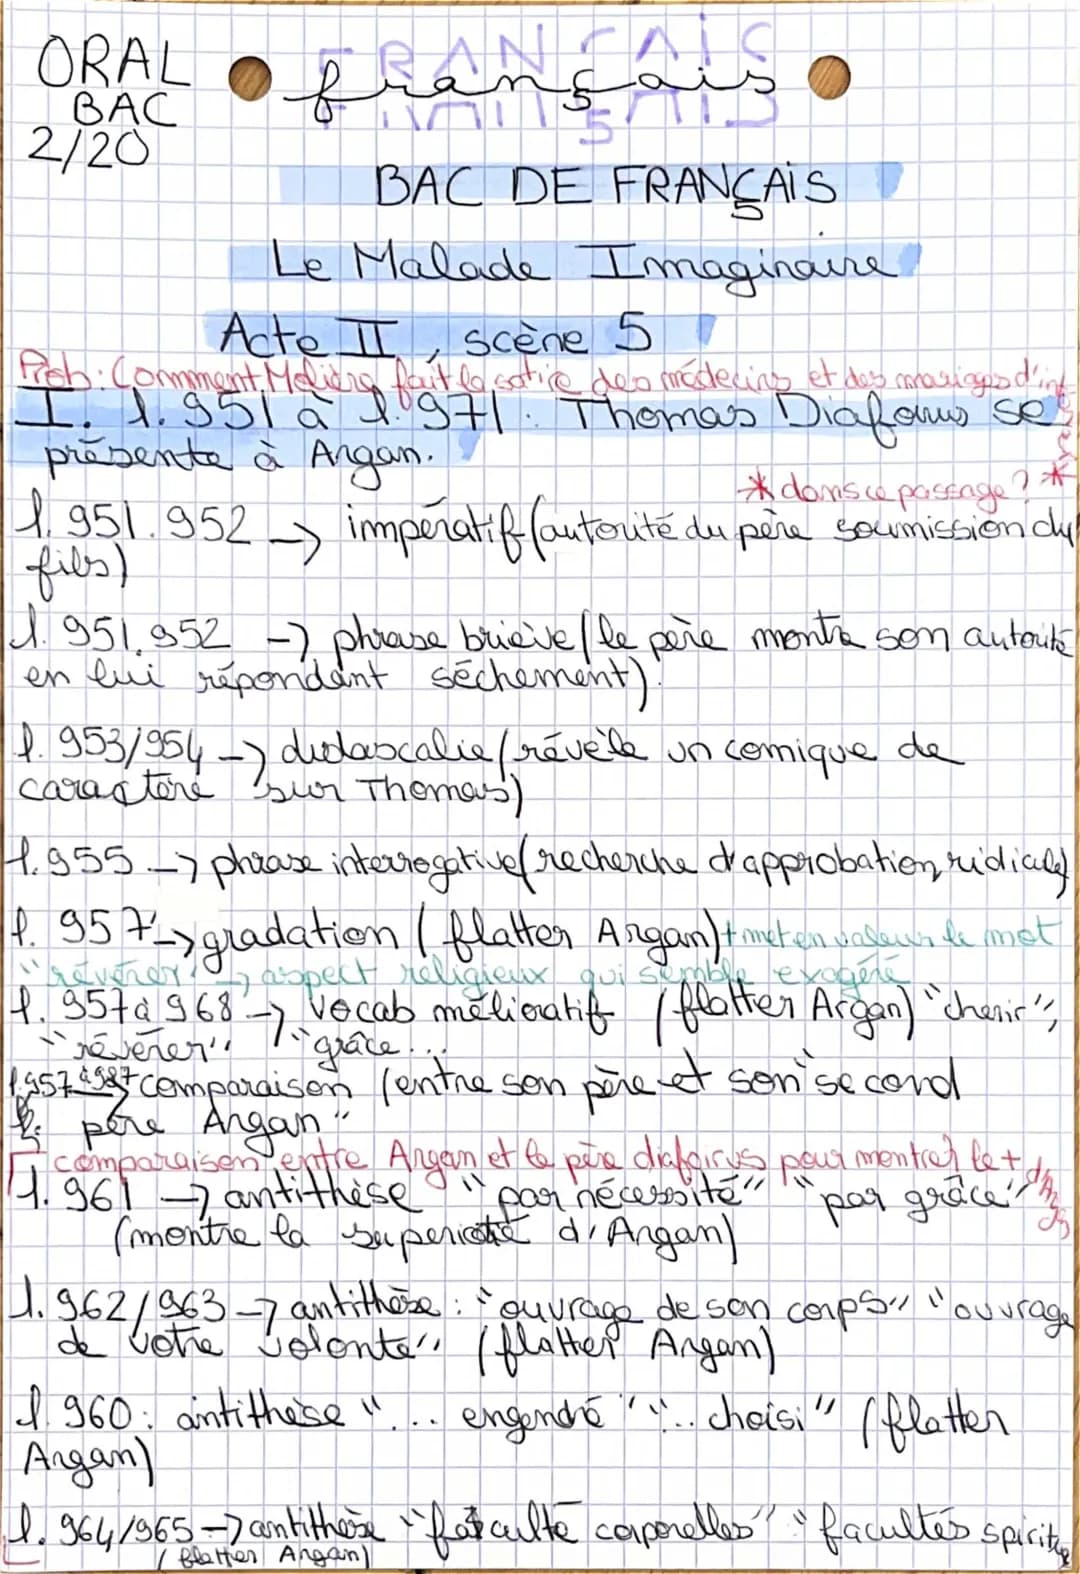 ORAL
BAC
2/20
FRANÇAIS
français
BAC DE FRANÇAIS
Le Malade Imaginaire
Acte II, scène 5
Prob: Comment Molière fait la satire des médecins et des mariages d'intérêts *
I. l.951 à l.971. Thomas Diafoirus se
présente à Argan.
* dans ce passage ?
l. 951.952 -> impératif (autorité du père soumission du
fils)
l. 951.952 -> phrase briève (le père montre son autorité
en lui répondant séchement).
l. 953/954 -> didascalie (révèle un comique de
caractère sur Thomas)
l. 955 -> phrase interrogative (recherche d'approbation, ridicule)
l. 957 -> gradation (flatter Argan) + met en valeur le mot
"révérer" -> aspect religieux qui semble exagéré
l. 957 à 968 -> vocab mélioratif (flatter Argan) "cherir",
"révérer", "grâce...
l.957 à 987 -> comparaison (entre son père et son "second
père Argan"
comparaison entre Argan et le père diafoirus pour montrer le + d'Argan
l. 961 -> antithèse "par nécessité" "par grâce"
(montre la superiorité d'Argan)
l. 962/963 -> antithèse : "ouvrage de son corps" "ouvrage
de votre volonté" (flatter Argan)
l. 960 : antithèse "... engendré" "... choisi" (flatter
Argan)
l. 964/965 -> antithèse "faculté corporelles" "facultés spirituelles
(flatter Argan)